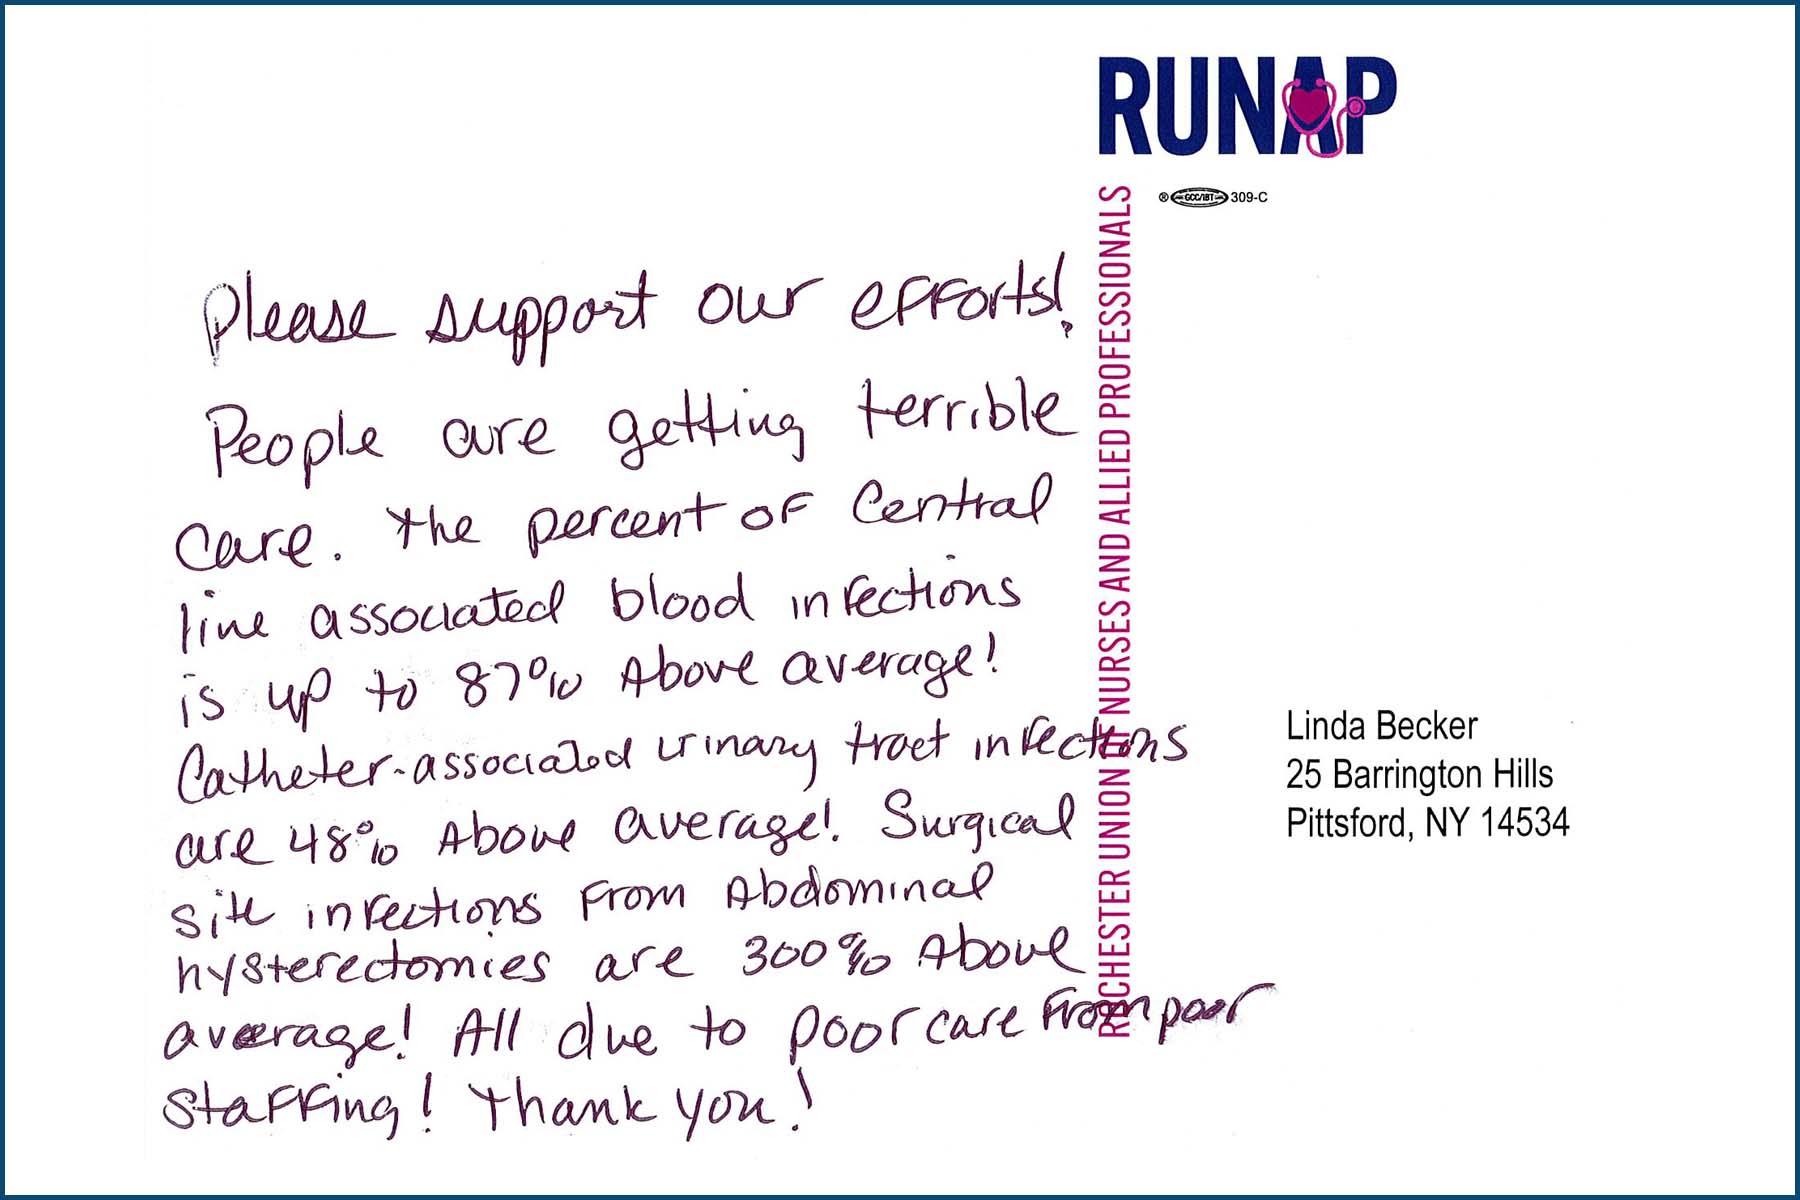 RUNAP
® GCC/IBT 309-C
ROCHESTER UNION OF NURSES AND ALLIED PROFESSIONALS
Please support our efforts!
People are getting terrible
Care. The percent of Central
line associated blood infections
is up to 87% Above average!
Catheter-associated urinary tract infections
are 48% Above average! Surgical
site infections from Abdominal
hysterectomies are 300% Above
average! All due to poor care from poor
staffing! Thank you!
Linda Becker
25 Barrington Hills
Pittsford, NY 14534